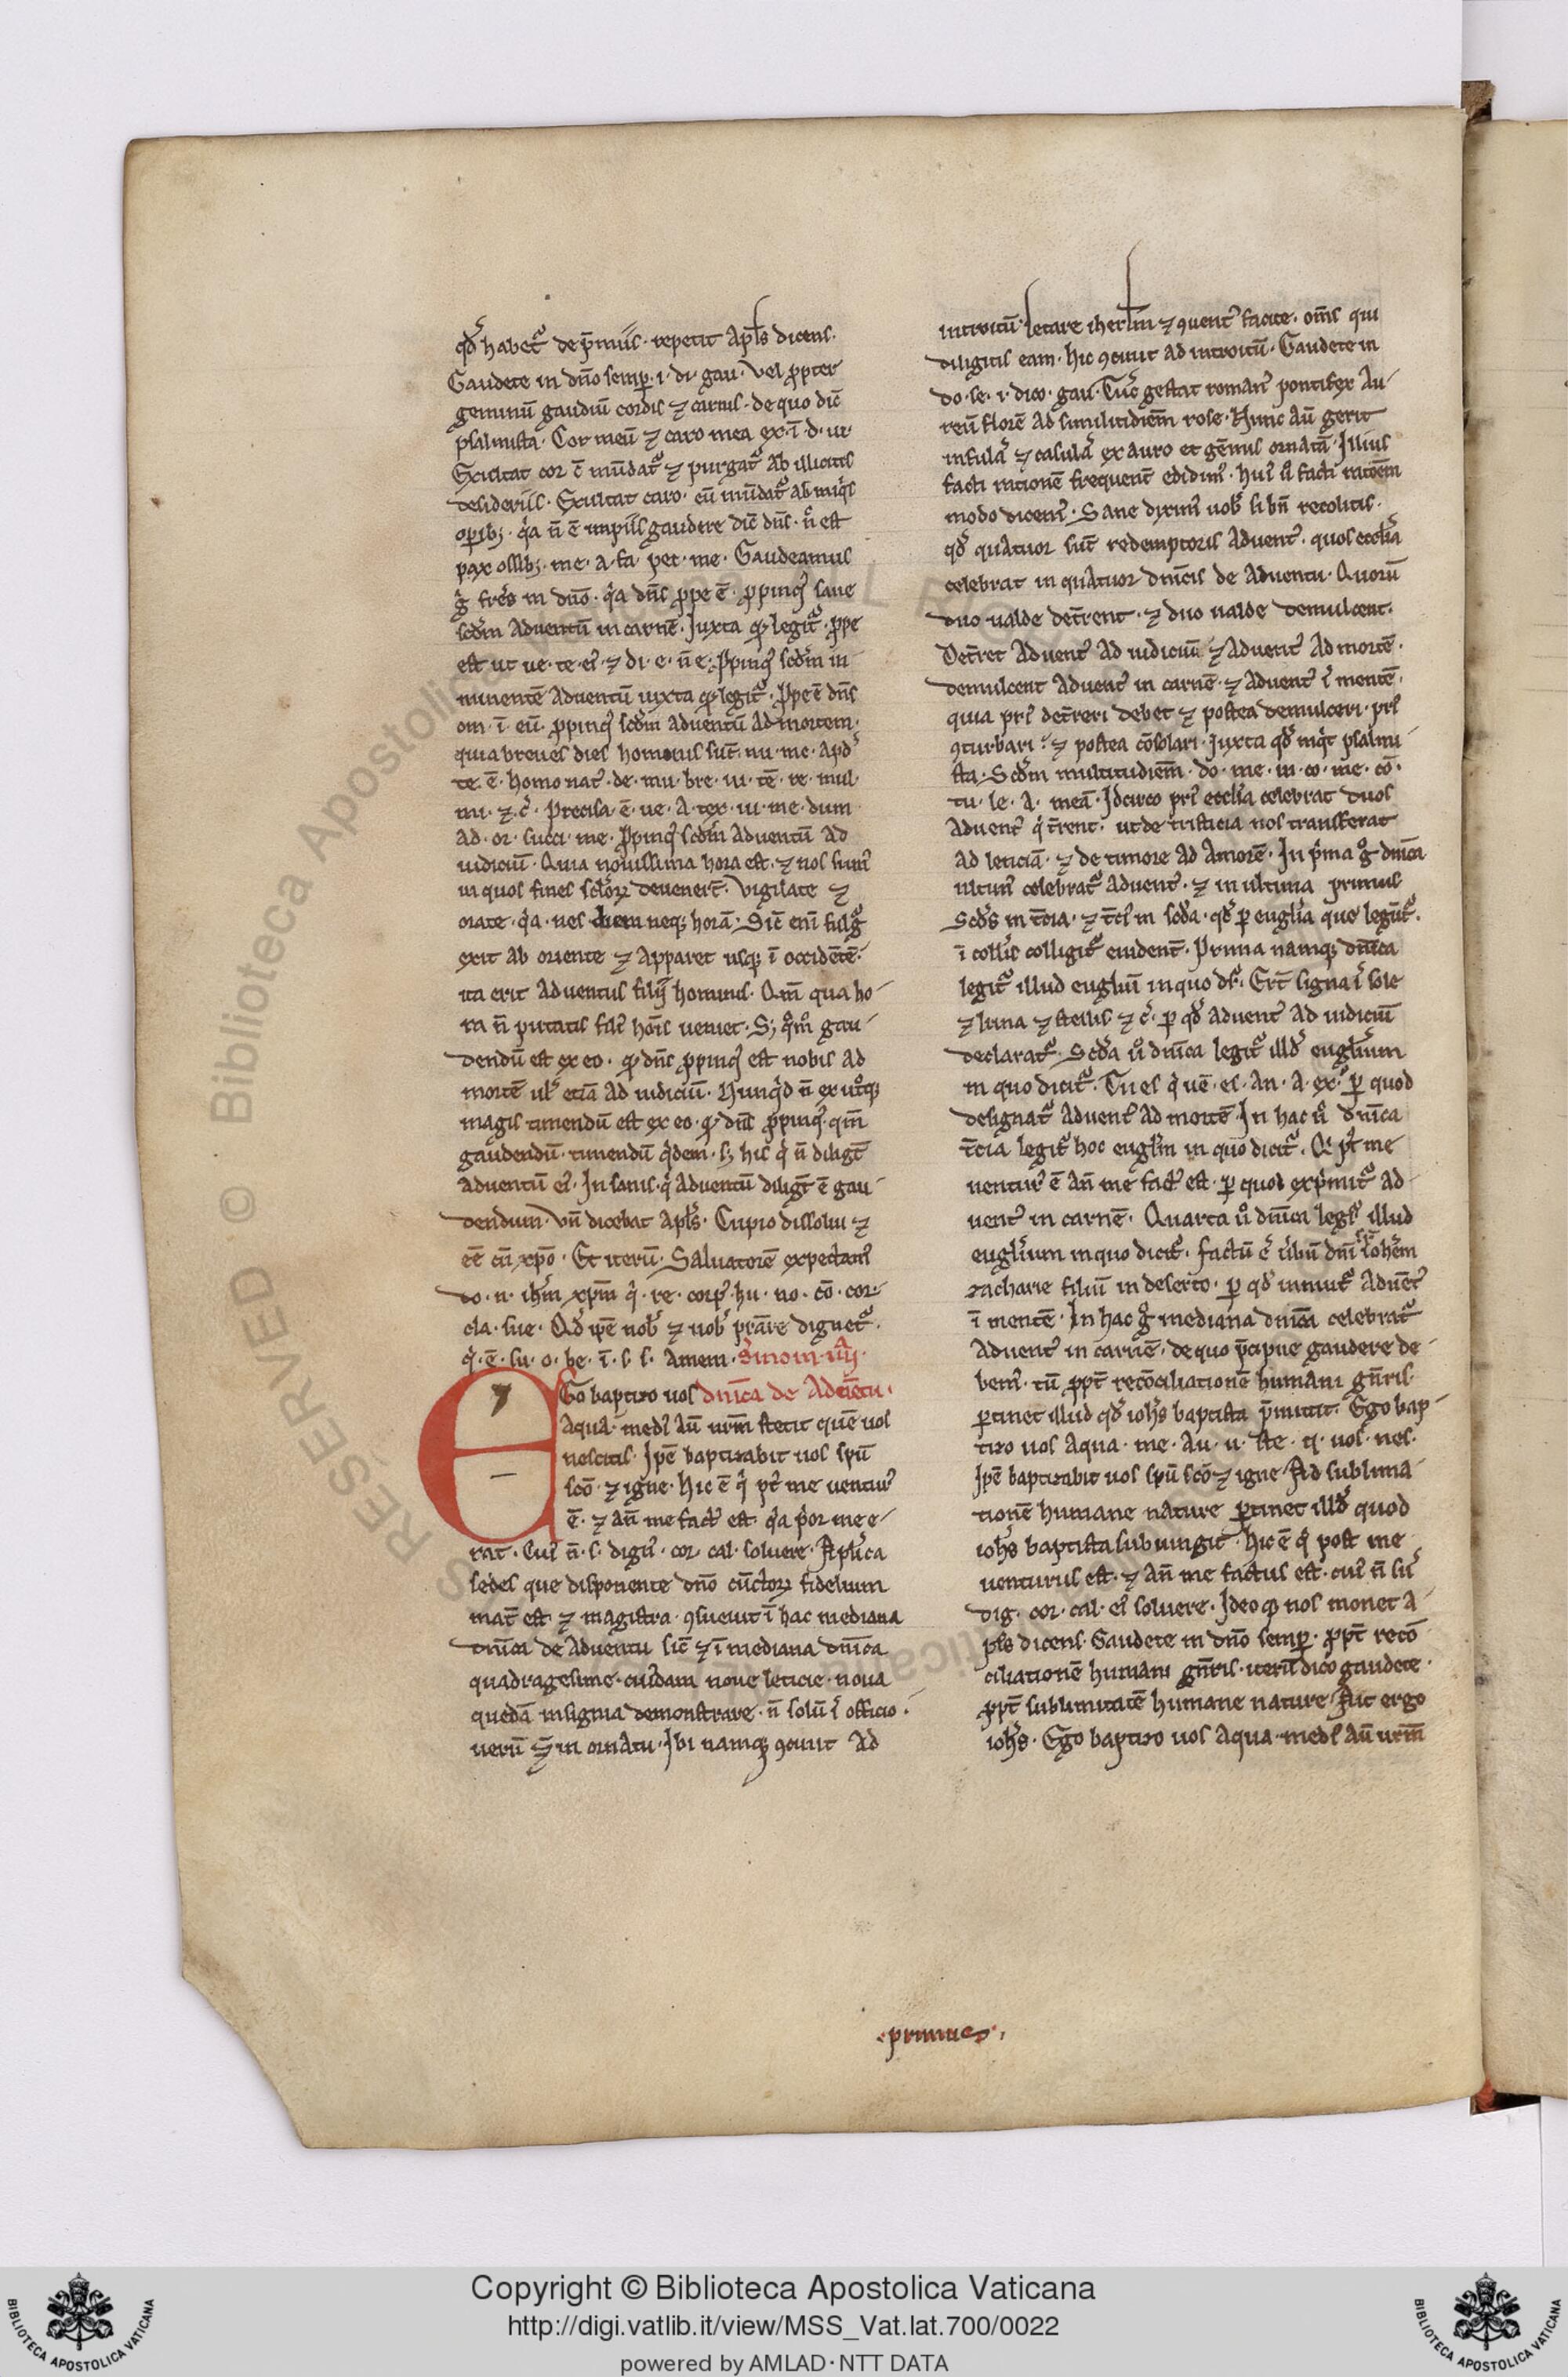 qđ habet᷑ de p̄miis. repetit Apl̄s dicens.
Gaudete in dn̄o semꝑ. i. di. gau. Vel ꝓpter
geminū gaudiū cordis ⁊ carnis. de quo dic̄
psalmista. Cor meū ⁊ caro mea ex. ī. d. ui.
Exultat cor c̄ mūdat᷑ ⁊ purgat᷑ ab illicitis
desideriis. Exultat caro. cū mūdat᷑ ab iniq̄s
oꝑibꝫ. q̇a n̄ ē impiis gaudere dic̄ dn̄s. n̄ est
pax ossibꝫ. me. a. fa. pec. me. Gaudeamus
g̊ fr̄es in dn̄o. q̇a dn̄s ꝓpe ē. ꝓpinqꝰ sane
scd̄m Aduentū in carnē. Juxta qꝫ legit᷑. ꝓpe
est ut ue. te. eiꝰ. ⁊ di. e. n̄ e. ꝓpinqꝰ scd̄m in
minentē Aduentū iuxta qꝫ legit᷑. Ꝓpe ē dn̄s
om. ī. eū. ꝓpinqꝰ scd̄m aduentū Ad mortem.
quia breues dies hominis sūt. nu. me. apd̓
te. ē. homo natꝰ. de. mu. bre. ui. tē. re. mul.
mi. ⁊ c̓. Precisa. ē. ue. A. tex. ui. me. dum
ad. or. succi. me. Ꝓpinqꝰ scd̄m Aduentū Ad
iudiciū. Quia nouissima hora est. ⁊ nos sumꝰ
in quos fines scl̄oꝝ deuener̄t. Vigilate ⁊
orate. q̇a. nes. diem neqꝫ horā. Sic̄ eni᷑ fulg᷑
exit ab oriente ⁊ Apparet usqꝫ ī occidētē.
ita erit Aduentus filii hominis. Qm̄ qua ho-
ra n̄ putatis filiꝰ hōis ueniet. Sꝫ qͦmͦ gau-
dendū est ex eo. qꝫ dn̄s ꝓpinqꝰ est nobis ad
mortē ul̓ etiā ad iudiciū. Nunqͥd n̄ ex utͦqꝫ
magis timendū est ex eo. qꝫ dn̄s ꝓpinqꝰ. qm̄
gaudendū. timendū qͥdem. sꝫ his qͥ n̄ diligt̄
aduentū eiꝰ. In sanis. qͥ Aduentū diligt̄ ē gau-
dendum. Vn̄ dicebat Apl̄s. Cupio dissolui ⁊
eē cū xp̄o. Et iterū. Saluatorē expectamꝰ
do. n. ih̄m xp̄m qͥ. re. corpꝰ. hu. no. cō. cor.
cla. sue. Qđ ip̄e nob̓ ⁊ uob̓ prāre dignet᷑.
qͥ. ē. su. o. be. ī. s. s. Amem. Sermo in. iiiᵃ.
Ego baptizo uos dn̄ica de Aduētu.
Aqua. mediꝰ aū ur̄m stetit quē uos
nescitis. Ip̄e baptizabit uos spū
scō. ⁊ igne. Hic ē qͥ pꝰt me uenturꝰ
ē. ⁊ an̄ me factꝰ est. q̇a pͥor me e-
rat. Cuiꝰ n̄. s. dignꝰ. cor. cal. soluere. Apl̄ica
sedes que disponente dn̄o cūctoꝝ fidelium
mat̄ est ⁊ magistra. ꝯsueuit ī hac mediana
dn̄ica de Aduentu sic̄ ⁊ ī mediana dn̄ica
quadragesime. cuiꝰdam noue leticie. noua
quedā insignia demonstrare. n̄ solū ī officio.
uerū ⁊ in ornatu. Ibi namqꝫ ꝯcinit Ad
introitū. letare ihrl̄m ⁊ ꝯuentꝰ facite. om̄s qui
diligitis eam. hic ꝯcinit ad introitū. Gaudete in
do. se. i. dico. gau. Tūc gestat romanꝰ pontifex Au-
reū florē ad similitudiem̄ rose. Nunc aū gerit
infulā ⁊ casulā ex auro et gēmis ornatā. Illius
facti rationē frequent̄ edidimꝰ. huiꝰ u̓ facti ratōem
modo dicemꝰ. Sane diximꝰ uob̓ si bn̄ recolitis.
qđ quatuor sūt redemptoris Aduentꝰ. quos eccl̄ia
celebrat in quatuor dn̄icis de Aduentu. Quorū
duo ualde det̄rent. ⁊ duo ualde demulcent.
Det̄ret Aduentꝰ ad iudiciū ⁊ Aduentꝰ Ad mortē.
demulcent Aduentꝰ in carnē. ⁊ Aduentꝰ ī mentē.
quia priꝰ det̄reri debet ⁊ postea demulceri. priꝰ
ꝯturbari. ⁊ postea cōsolari. Juxta qđ inqͥt psalmi-
sta. Scd̄m multitudiem̄. do. me. in. co. me. cō.
tu. le. a. meā. Idcirco priꝰ eccl̄ia celebrat duos
Aduentꝰ qͥ t̄rent. ut de tristicia nos transferat
ad leticiā. ⁊ de timore ad Amorē. In pͥma g̊ dn̄ica
ultimꝰ celebrat᷑ aduentꝰ. ⁊ in ultima primus
Scd̄s in t̄cia. ⁊ t̄ciꝰ in scd̄a. qđ ꝑ eugl̄ia que legūt᷑.
ī collis colligit᷑ euident̄. Prima namqꝫ dn̄ica
legit᷑ illud eugliū in quo dr̄. Er̄t signa ī sole
⁊ luna ⁊ stellis ⁊ c̓. ꝑ qđ Aduentꝰ ad iudiciū
declarat᷑. Scd̄a u̓ dn̄ica legit᷑ illd̓ eugl̄ium
in quo dicit᷑. Tu es qͥ uē. es. An. a. ex. ꝑ quod
designat᷑ Aduentꝰ ad mortē. In hac u̓ dn̄ica
t̄cia legit᷑ hoc eugl̄m in quo dicit᷑. Qͥ pꝰt me
uenturꝰ ē an̄ me factꝰ est. ꝑ quod expͥmit᷑ ad-
uentꝰ in carnē. Quarta u̓ dn̄ica legit᷑ illud
eugl̄ium in quo dicit᷑. factū ē uerbū dn̄i sr̄ ioh̄em
zacharie filiū in deserto. ꝑ qđ innuit᷑ Aduētꝰ
ī mentē. In hac g̊ mediana dn̄ica celebrat᷑
Aduentꝰ in carnē. de quo p̄cipue gaudere de-
bemꝰ. tū ꝓpt̄ recōciliationē humani gn̄ris.
ꝑtinet illud qđ ioh̄s baptista p̄mittit. Ego bap-
tizo uos Aqua. me. Au. u. ste. q. uos. nes.
Ip̄e baptizabit uos spū scō ⁊ igne. Ad sublima-
tionē humane nature ꝑtinet illd̓ quod
ioh̄s baptista subiungit. hic ē qͥ post me
uenturus est. ⁊ an̄ me factus est. cuiꝰ n̄ sū
dig. cor. cal. eiꝰ soluere. Ideoqꝫ nos monet a-
pl̄s dicens. Gaudete in dn̄o semꝑ. ꝓpt̄ recō-
ciliationē humani gn̄ris. iterū dico gaudete.
ꝓpt̄ sublimitatē humane nature. Ait ergo
ioh̄s. Ego baptizo uos Aqua. mediꝰ aū ur̄m
.primus.
Copyright © Biblioteca Apostolica Vaticana
http://digi.vatlib.it/view/MSS_Vat.lat.700/0022
powered by AMLAD·NTT DATA
BIBLIOTECA APOSTOLICA VATICANA
BIBLIOTECA APOSTOLICA VATICANA